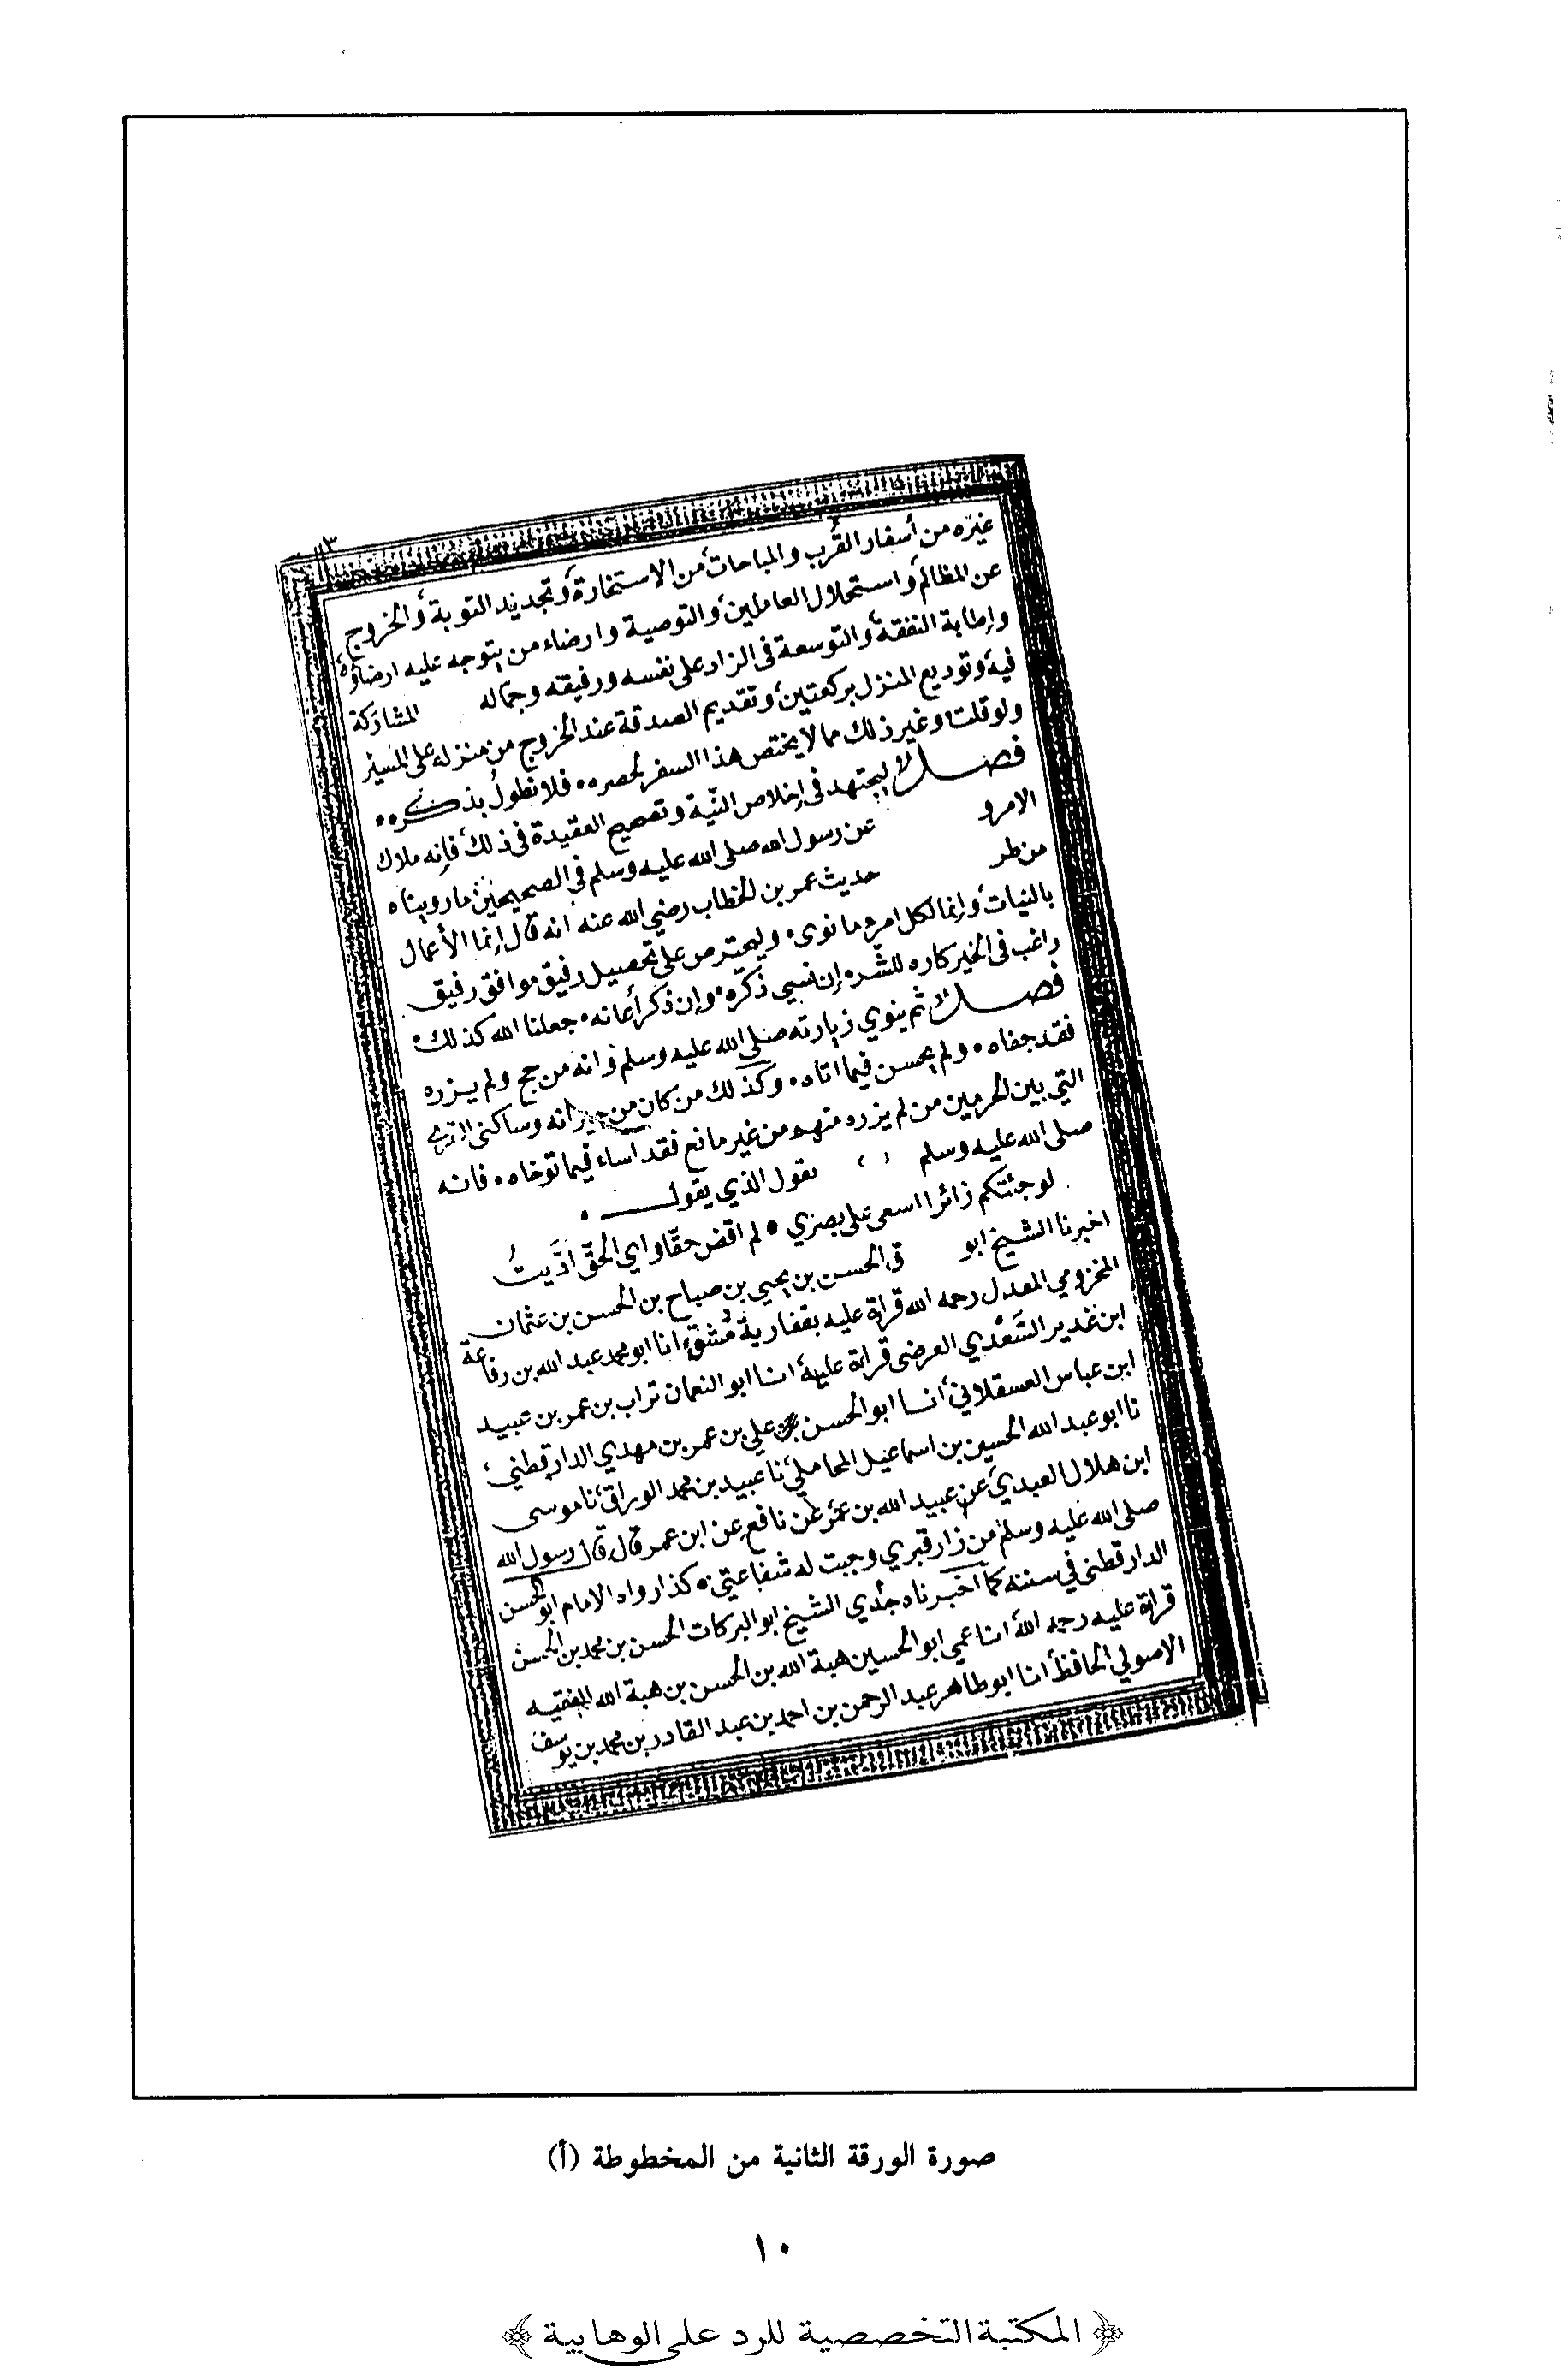 ٣
غيره من أسفار القُرب والمباحات من الاستخارة وتجديد التوبة والخروج
عن المظالم واستحلال العاملين والتوصية وارضاء من يتوجه عليه ارضاؤه
وإطابة النفقة والتوسعة في الزاد على نفسه ورفيقه وجماله المشاركة
فيه وتوديع المنزل بركعتين وتقديم الصدقة عند الخروج من منزله على المسير
ولو قلت وغير ذلك مما لا يختص هذا السفر بحصره فلا نطول بذكره
فصل ليجتهد في إخلاص النيّة وتصحيح العقيدة في ذلك فإنه ملاك
الامر و عن رسول الله صلى الله عليه وسلم في الصحيحين ما رويناه
من طر حديث عمر بن الخطاب رضي الله عنه انه قال إنما الأعمال
بالنيات وإنما لكل امرء ما نوى وليحترص على تحصيل رفيق موافق رفيق
راغب في الخير كاره للشّر إن نسي ذكّره وإن ذكر أعانه جعلنا الله كذلك
فصل ثم ينوي زيارته صلى الله عليه وسلم فانه من حج ولم يزره
فقد جفاه ولم يحسن فيما اتاه وكذلك من كان من جيرانه وساكني القرى
التي بين الحرمين من لم يزره منهم من غير مانع فقد اساء فيما توخاه فانه
صلى الله عليه وسلم يقول الذي يقول
لو جئتكم زائرا اسعى على بصري لم اقض حقا واي الحقّ ادّيتُ
اخبرنا الشيخ ابو ق الحسن بن يحيى بن صباح بن الحسن بن عثمان
المخزومي المعدل رحمه الله قراة عليه انا ابو محمد عبد الله بن رفاعة
ابن غدير السَعْدي الفرضي قراءة عليه انا ابو النعمان تراب بن عمر بن عبيد
ابن عباس العسقلاني انا ابو الحسن علي بن عمر بن مهدي الدارقطني
نا ابو عبد الله الحسين بن اسماعيل المحاملي نا عبيد بن محمد الوراق نا موسى
ابن هلال العبدي عن عبيد الله بن عمر عن نافع عن ابن عمر قال قال رسول الله
صلى الله عليه وسلم من زار قبري وجبت له شفاعتي كذا رواه الامام ابو الحسن
الدارقطني في سننه كما أخبرناه جدي الشيخ ابو البركات الحسن بن محمد بن الحسن
قراة عليه رحمه الله انا عمي ابو الحسين هبة الله بن الحسن بن هبة الله الفقيه
الاصولي الحافظ انا ابو طاهر عبد الرحمن بن احمد بن عبد القادر بن محمد بن يوسف
صورة الورقة الثانية من المخطوطة (أ)
١٠
﴿المكتبة التخصصية للرد على الوهابية﴾